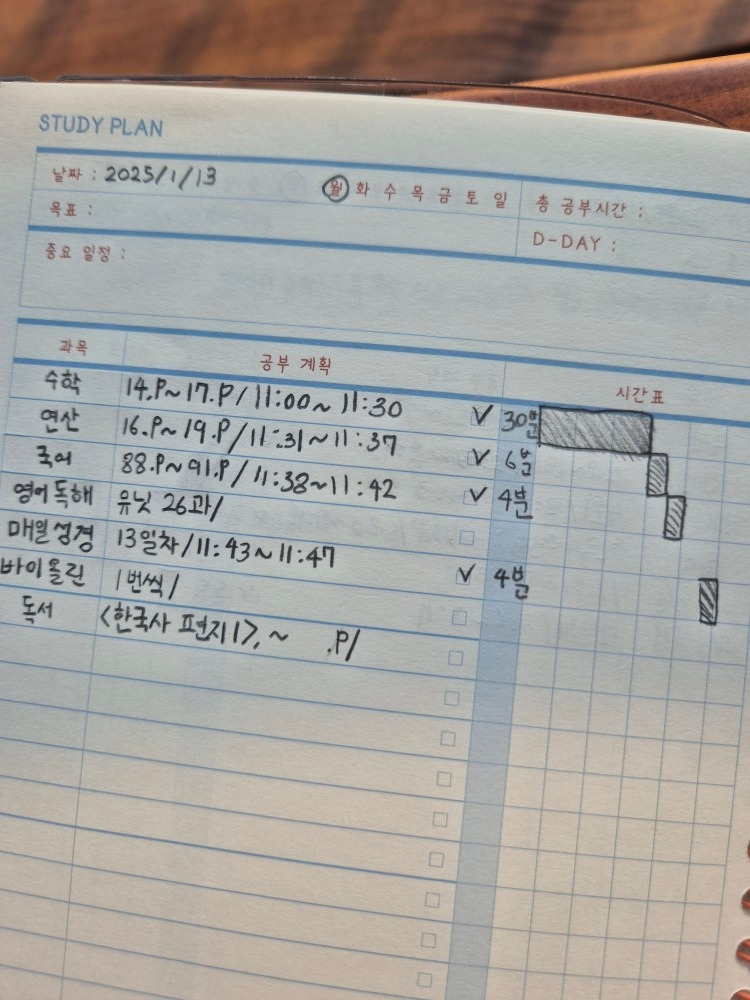 STUDY PLAN
날짜 : 2025/1/13 월 화 수 목 금 토 일 총 공부시간 :
목표 : D-DAY :
중요 일정 :
과목 공부 계획 시간표
수학 14.P~17.P/11:00~11:30 V 30분
연산 16.P~19.P/11:31~11:37 V 6분
국어 88.P~91.P/11:38~11:42 V 4분
영어독해 유닛 26과/
매일성경 13일차/11:43~11:47 V 4분
바이올린 1번씩/
독서 <한국사 편지1>, ~ .P/